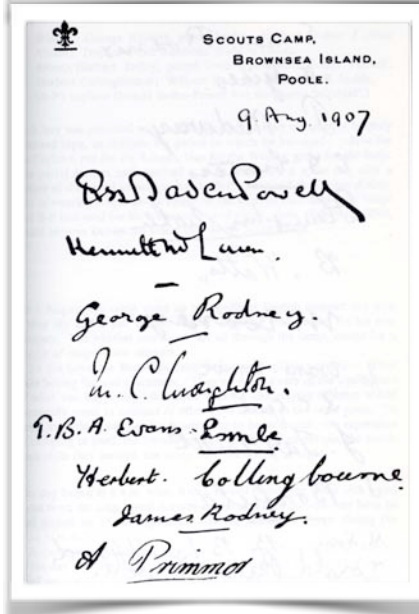 SCOUTS CAMP,
BROWNSEA ISLAND,
POOLE.
9. Aug 1907
Baden Powell
Kenneth
George Rodney.
M. C.
T. B. A. Evans-Lombe
Herbert. Collingbourne
James. Rodney.
A Primmer